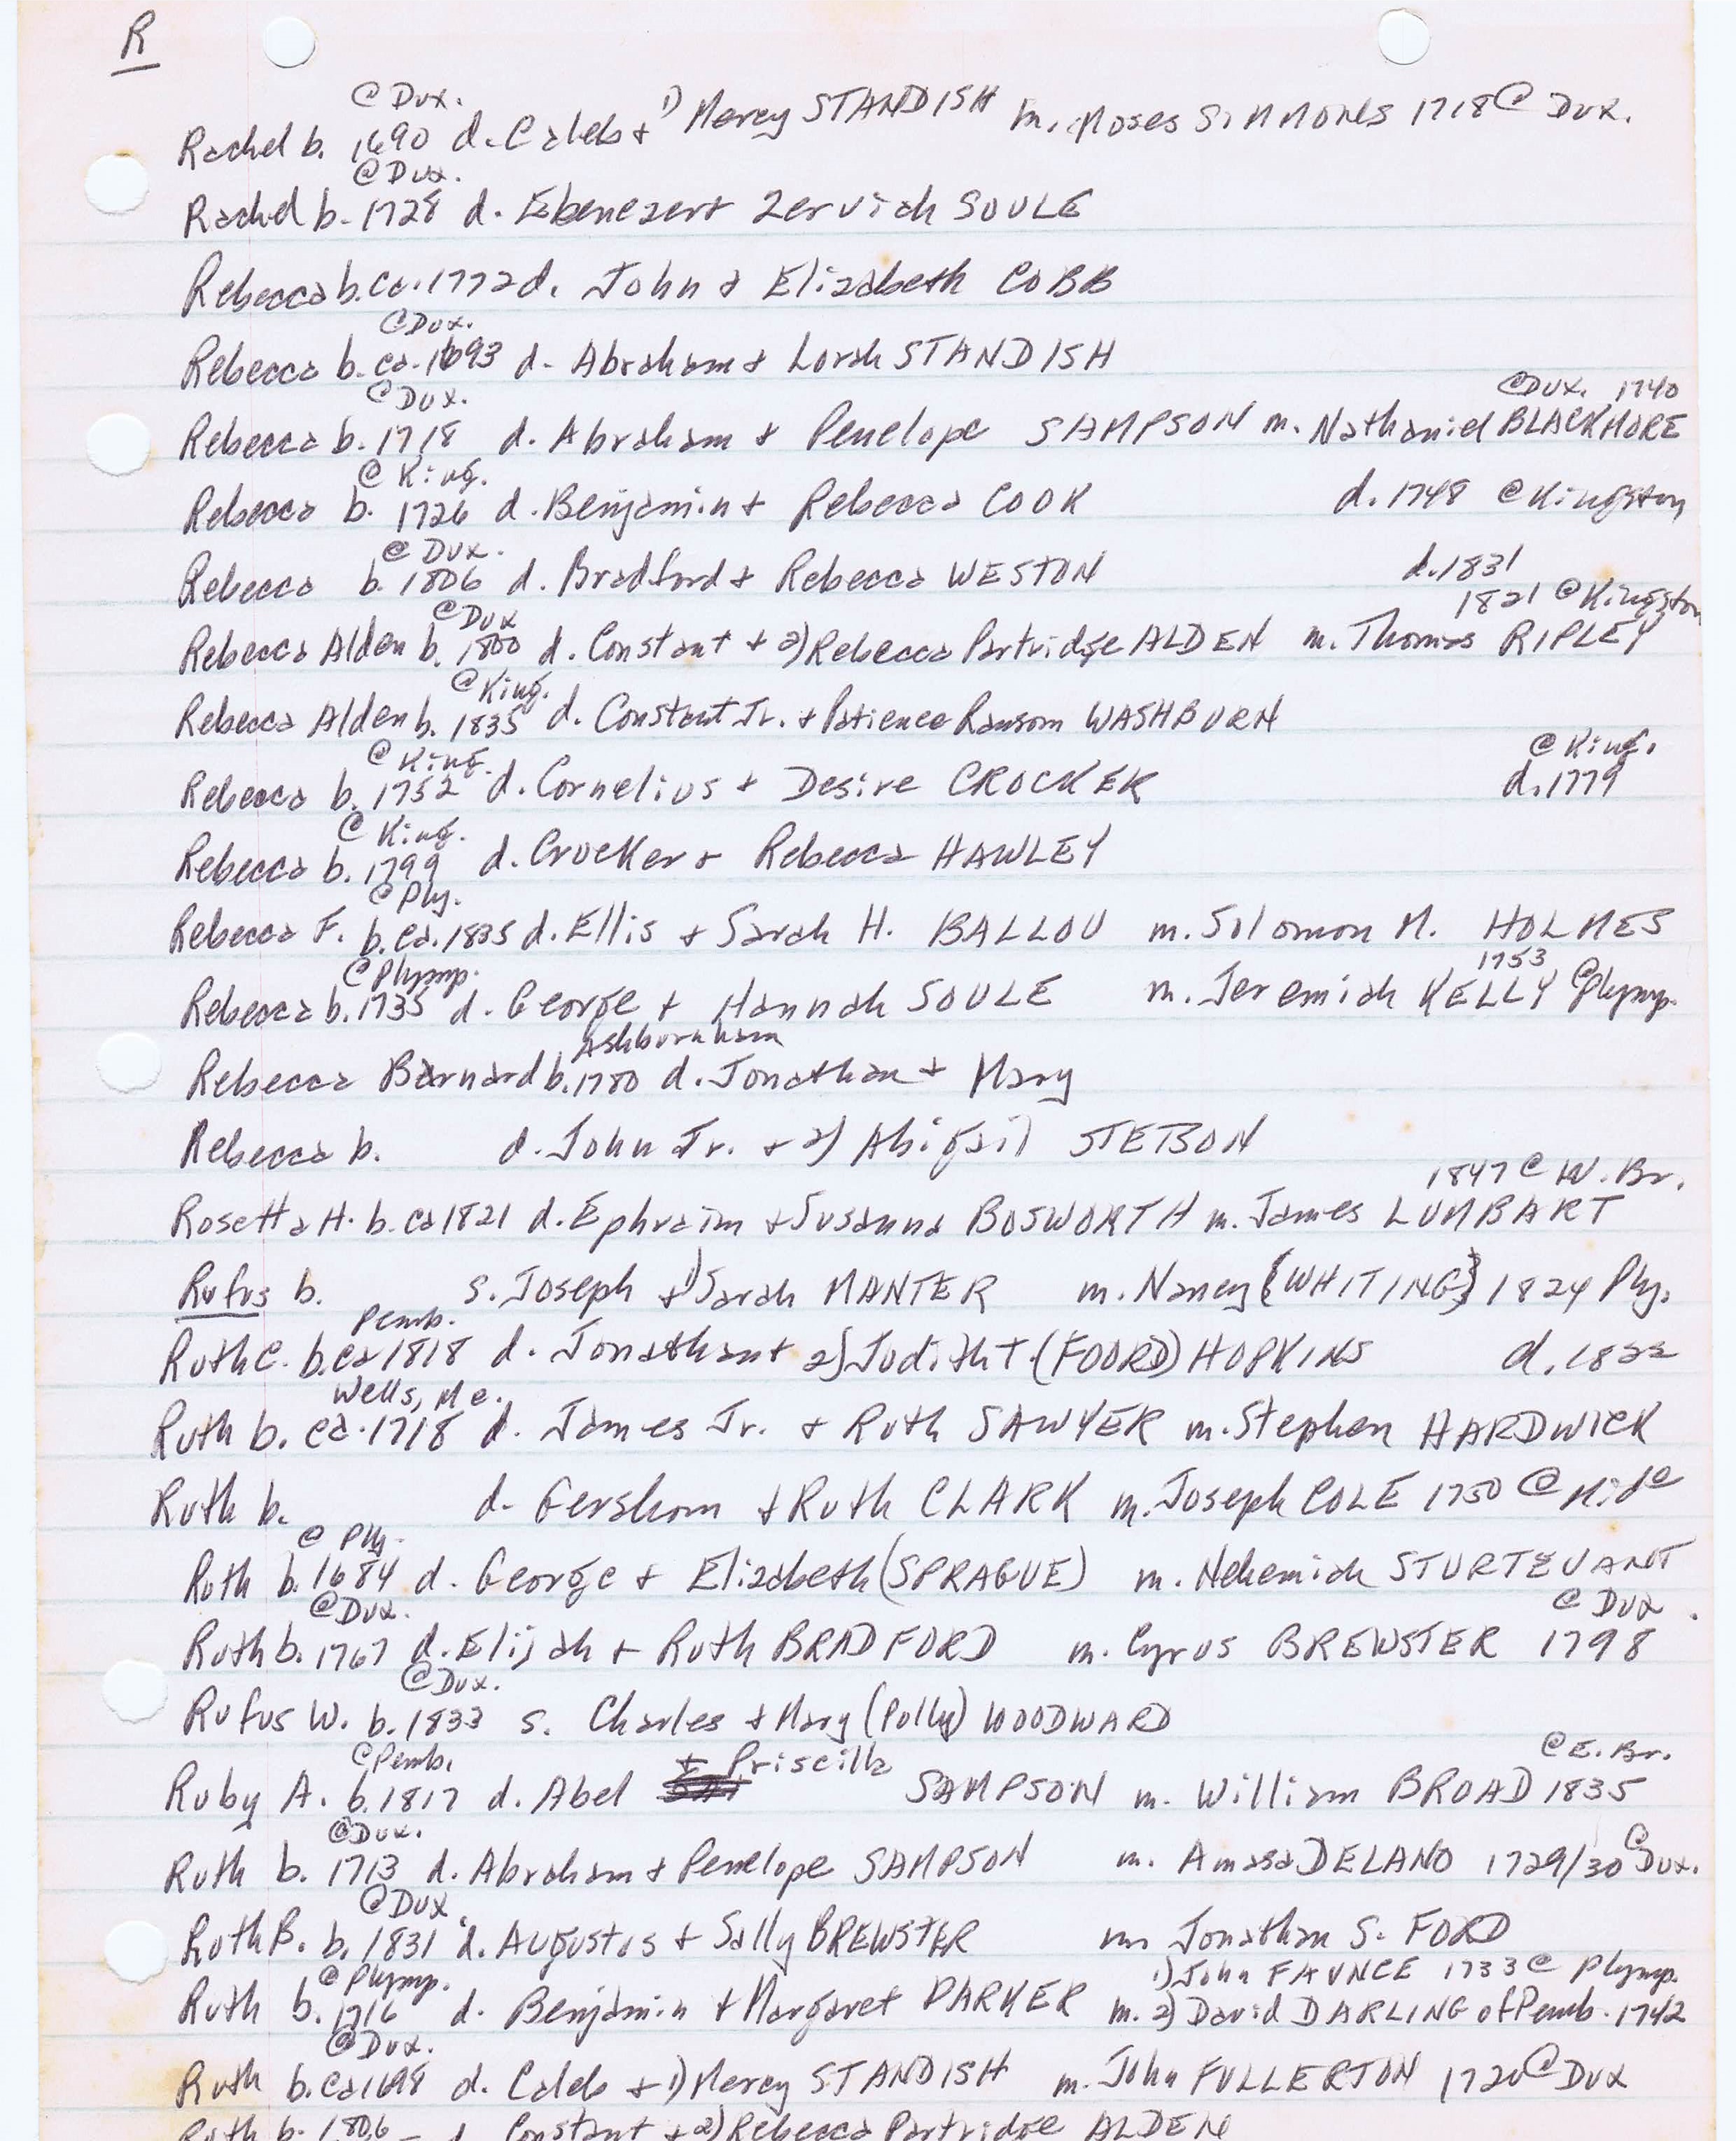 R
@ Dux.
Rachel b. 1690 d. Caleb + 1) Mercy STANDISH m. Moses SIMMONS 1718 @ Dux.
@ Dux.
Rachel b. 1728 d. Ebenezer + Zerviah SOULE
Rebecca b. ca. 1772 d. John + Elizabeth COBB
@ Dux.
Rebecca b. ca. 1693 d. Abraham + Lorah STANDISH
@ Dux. @ Dux. 1740
Rebecca b. 1718 d. Abraham + Penelope SAMPSON m. Nathaniel BLACKMORE
@ King.
Rebecca b. 1726 d. Benjamin + Rebecca COOK d. 1748 @ Kingston
@ Dux.
Rebecca b. 1806 d. Bradford + Rebecca WESTON d. 1831
@ Dux 1821 @ Kingston
Rebecca Alden b. 1800 d. Constant + 2) Rebecca Partridge ALDEN m. Thomas RIPLEY
@ King.
Rebecca Alden b. 1835 d. Constant Jr. + Patience Ransom WASHBURN
@ King. @ King.
Rebecca b. 1752 d. Cornelius + Desire CROCKER d. 1779
@ King.
Rebecca b. 1799 d. Crocker + Rebecca HAWLEY
@ Ply.
Rebecca F. b. ca. 1835 d. Ellis + Sarah H. BALLOU m. Solomon M. HOLMES
@ Plymp. 1753
Rebecca b. 1735 d. George + Hannah SOULE m. Jeremiah KELLY @ Plymp.
Ashburnham
Rebecca Barnard b. 1780 d. Jonathan + Mary
Rebecca b. d. John Jr. + 2) Abigail STETSON
1847 @ W. Br.
Rosetta H. b. ca 1821 d. Ephraim + Susanna BOSWORTH m. James LUMBART
Rufus b. s. Joseph + 1) Sarah MANTER m. Nancy {WHITING} 1824 Ply.
Pemb.
Ruth C. b. ca 1818 d. Jonathan + 2) Judith T. (FOORD) HOPKINS d. 1822
Wells, Me.
Ruth b. ca. 1718 d. James Jr. + Ruth SAWYER m. Stephen HARDWICK
Ruth b. d. Gershom + Ruth CLARK m. Joseph COLE 1750 @ Mid
@ Ply.
Ruth b. 1684 d. George + Elizabeth (SPRAGUE) m. Nehemiah STURTEVANT
@ Dux. @ Dux.
Ruth b. 1767 d. Elijah + Ruth BRADFORD m. Cyrus BREWSTER 1798
@ Dux.
Rufus W. b. 1833 s. Charles + Mary (Polly) WOODWARD
@ Pemb. + Priscilla @ E. Br.
Ruby A. b. 1817 d. Abel SAMPSON m. William BROAD 1835
@ Dux.
Ruth b. 1713 d. Abraham + Penelope SAMPSON m. Amasa DELANO 1729/30 @ Dux.
@ Dux.
Ruth B. b. 1831 d. Augustus + Sally BREWSTER m. Jonathan S. FORD
@ Plymp. 1) John FAUNCE 1733 @ Plymp.
Ruth b. 1716 d. Benjamin + Margaret PARKER m. 2) David DARLING of Pemb. 1742
@ Dux.
Ruth b. ca 1698 d. Caleb + 1) Mercy STANDISH m. John FULLERTON 1720 @ Dux
Ruth b. 1806 d. Constant + 2) Rebecca Partridge ALDEN